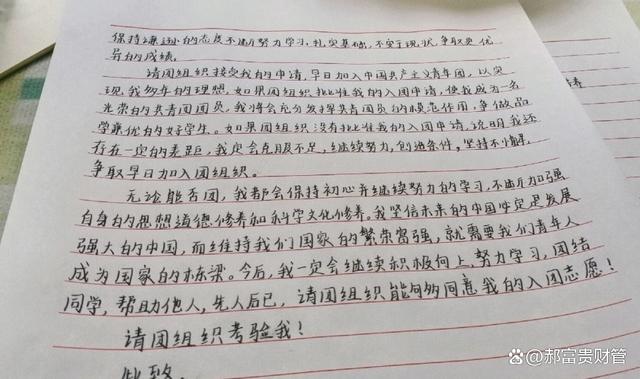 保持谦逊的态度不断努力学习，扎实基础，不安于现状，争取更优
异的成绩。
请团组织接受我的申请，早日加入中国共产主义青年团，以实
现我多年的理想。如果团组织批准我的入团申请，使我成为一名
光荣的共青团团员，我将会充分发挥共青团员的模范作用，争做品
学兼优的好学生。如果团组织没有批准我的入团申请，说明我还
存在一定的差距，我定会克服不足，继续努力，创造条件，坚持不懈，
争取早日加入团组织。
无论能否团，我都会保持初心并继续努力的学习，不断加强
自身的思想道德修养和科学文化修养。我坚信未来的中国定是发展
强大的中国，而维持我们国家的繁荣富强，就需要我们青年人
成为国家的栋梁。今后，我一定会继续积极向上，努力学习，团结
同学，帮助他人，先人后己，请团组织能够同意我的入团志愿！
请团组织考验我！
此致，
@郝富贵财管